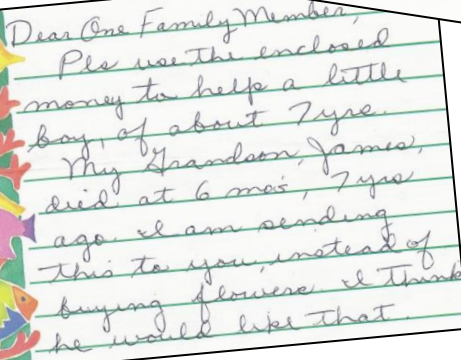 Dear One Family Member,
Pls use the enclosed
money to help a little
boy, of about 7yrs.
My Grandson, James,
died at 6 mos, 7yrs
ago. I am sending
this to you, instead of
buying flowers I think
he would like that.